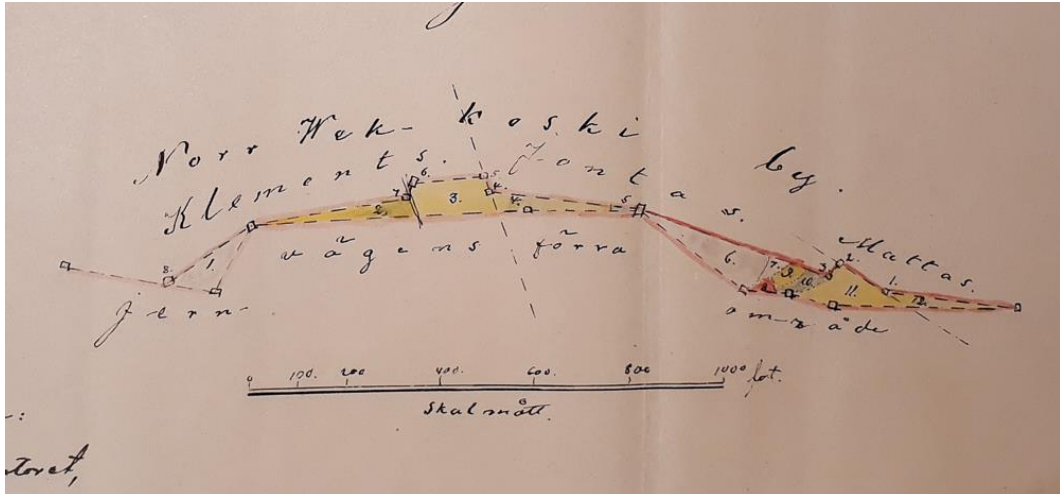 Norr Wek-koski by.
Klements. Jontas. Mattas.
6. 5.
7. 4. 5. 2.
2. 3. 4. 6. 7. 9. 10. 3. 1.
8. 1. 11. 12.
jern- vägens förra område
0 100. 200 400. 600. 800 1000 fot.
Skalmått.